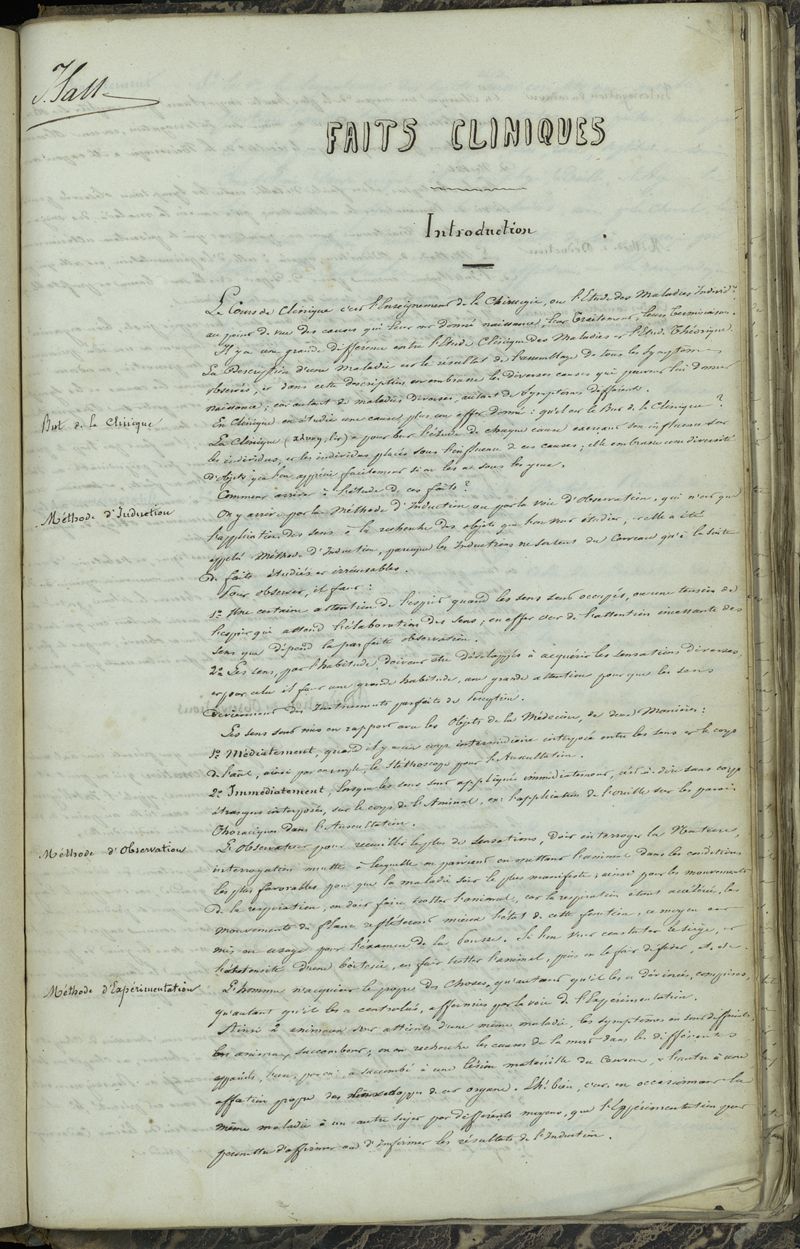 FAITS CLINIQUES
Introduction
Le Cours de Clinique c'est l'Enseignement de la Chirurgie, ou l'Etude des Maladies Individ.
au point de vue des causes qui leur ont donné naissance, leur Traitement, leurs terminaisons.
Il y a une grande différence entre l'Etude Clinique des Maladies et l'Etude Théorique.
La Description d'une Maladie est le résultat de l'assemblage de tous les Symptômes
observés, et dans cette description on embrasse les diverses causes qui peuvent lui donner
naissance ; car autant de maladies diverses, autant de Symptômes différents.
En Clinique on étudie une cause, plus un effet donné : qu'est ce le But de la Clinique ?
But de la Clinique
La Clinique a pour but l'étude de chaque cause exerçant son influence sur
les individus, et les individus placés sous l'influence de ces causes ; elle embrasse une diversité
d'objets qu'on apprécie facilement si on les a sous les yeux.
Comment arriver à l'étude de ces faits ?
Méthode d'Induction
On y arrive par la Méthode d'Induction ou par la voie d'Observation, qui n'est que
l'application des sens à la recherche des objets que l'on veut étudier, elle a été
appelée Méthode d'Induction, parceque les Inductions ne sortent du Cerveau qu'à la suite
de faits étudiés et irrécusables.
Pour observer, il faut :
1º Une certaine attention de l'esprit quand les sens sont occupés, ou une tension de
l'esprit qui attend l'élaboration des sens ; en effet c'est de l'attention incessante des
sens que dépend la parfaite observation.
2º Les sens, par l'habitude, doivent être développés à acquérir les sensations diverses
et pour cela il faut une grande habitude, une grande attention pour que les sens
deviennent des Instruments parfaits de perception.
Les sens sont mis en rapport avec les Objets de la Médecine, de deux Manières :
1º Médiatement, quand il y a un corps intermédiaire interposé entre les sens et le corps
ainsi par exemple, le Stéthoscope pour l'Auscultation.
2º Immédiatement, lorsque les sens sont appliqués immédiatement, c'est-à-dire sans corps
étrangers interposés, sur le corps de l'Animal, ex: l'application de l'oreille sur les parois
thoraciques dans l'Auscultation.
Méthode d'Observation
L'Observateur pour recueillir le plus de Sensations, doit interroger la Nature,
interrogation muette à laquelle on parvient en mettant l'animal dans les conditions
les plus favorables pour que la maladie soit le plus manifeste ; ainsi pour les mouvements
de la respiration, on doit faire trotter l'animal, car la respiration étant accélérée, les
mouvements de flanc reflèteront mieux l'état de cette fonction, ce moyen est
mis en usage pour l'examen de la Pousse. Si l'on veut constater le siège, et
l'intensité d'une boiterie, on fait trotter l'animal, puis on le fait etc.
Méthode d'Expérimentation
L'homme n'acquiert le propre des Choses, qu'autant qu'il les a comparées,
qu'autant qu'il les a controlées, affirmées par la voie de l'Expérimentation.
Ainsi 2 animaux sont atteints d'une même maladie, les symptômes en sont différents,
les animaux succombent ; on recherche les causes de la mort dans les différents
appareils, l'un a succombé à une lésion matérielle du Cerveau, l'autre à une
affection propre des enveloppes de cet organe. Eh! bien, c'est en occasionnant la
même maladie à un autre sujet par différents moyens, que l'Expérimentation peut
permettre d'affirmer ou d'infirmer les résultats de l'Induction.